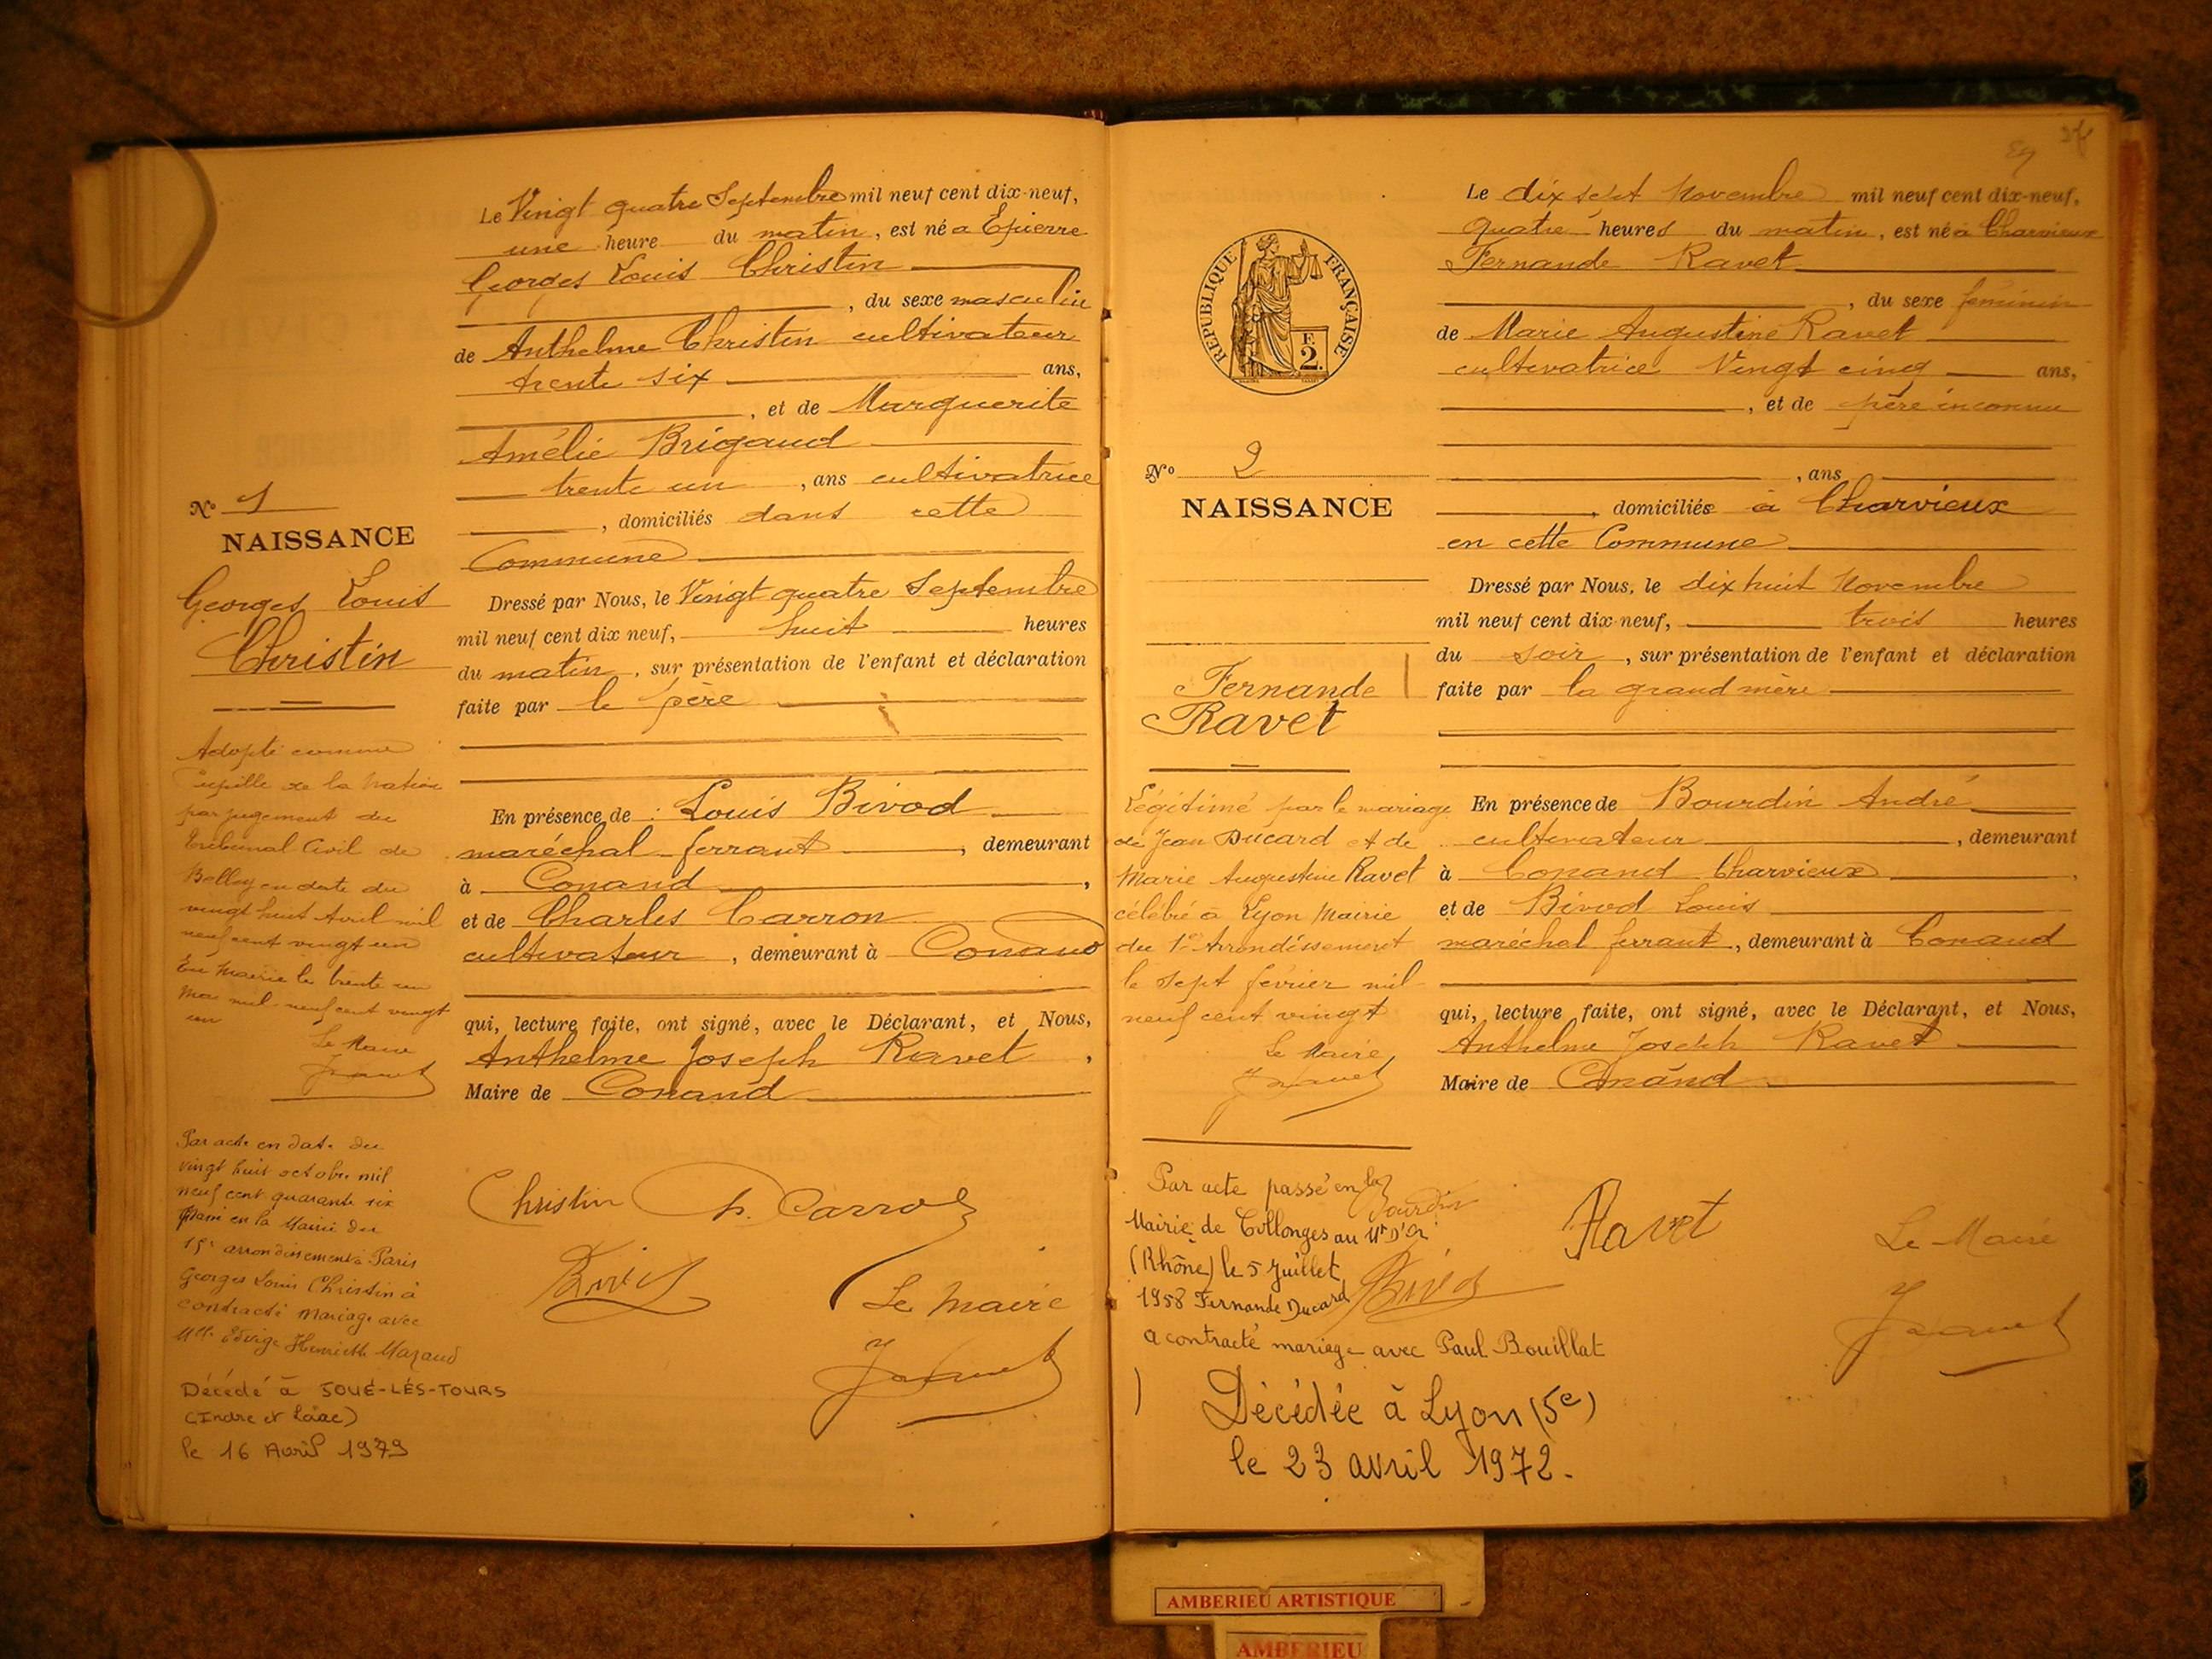 Le Vingt quatre Septembre mil neuf cent dix-neuf,
une heure du matin, est né à Epierre
Georges Louis Christin
, du sexe masculin
de Anthelme Christin cultivateur
trente six ans,
, et de Marguerite
Amélie Brigaud
trente un , ans cultivatrice
, domiciliés dans cette
Commune
Dressé par Nous, le Vingt quatre Septembre
mil neuf cent dix neuf, huit heures
du matin, sur présentation de l'enfant et déclaration
faite par le père
En présence de : Louis Bivod
maréchal ferrant , demeurant
à Conand ,
et de Charles Carron
cultivateur , demeurant à Conand
qui, lecture faite, ont signé, avec le Déclarant, et Nous,
Anthelme Joseph Ravet ,
Maire de Conand
Christin Carron
Le Maire
No 1
NAISSANCE
Georges Louis
Christin
Adopté comme
Pupille de la Nation
par jugement du
Tribunal Civil de
Belley en date du
vingt huit Avril mil
neuf cent vingt un
En Mairie le trente un
Mai mil neuf cent vingt
un
Le Maire
Par acte en date du
vingt huit octobre mil
neuf cent quarante six
en la Mairie du
15e arrondissement à Paris
Georges Louis Christin à
contracté mariage avec
Mlle Edvige Henriette Mazaud
Décédé à JOUÉ-LÉS-TOURS
(Indre et Loire)
le 16 Avril 1979
Le dix sept Novembre mil neuf cent dix-neuf,
quatre heures du matin, est né à Charvieux
Fernande Ravet
, du sexe féminin
de Marie Augustine Ravet
cultivatrice Vingt cinq ans,
, et de père inconnu
, ans
, domiciliée à Charvieux
en cette Commune
Dressé par Nous, le dix huit Novembre
mil neuf cent dix-neuf, trois heures
du soir , sur présentation de l'enfant et déclaration
faite par la grand mère
En présence de Bourdin André
cultivateur , demeurant
à Conand Charvieux ,
et de Bivod Louis
maréchal ferrant , demeurant à Conand
qui, lecture faite, ont signé, avec le Déclarant, et Nous,
Anthelme Joseph Ravet
Maire de Conand
Bourdin
Ravet
Le Maire
RÉPUBLIQUE FRANÇAISE
E
2.
No 2
NAISSANCE
Fernande
Ravet
Légitimé par le mariage
de Jean Ducard et de
Marie Augustine Ravet
célébré à Lyon Mairie
du 1er Arrondissement
le sept février mil
neuf cent vingt
Le Maire
Par acte passé en la
Mairie de Collonges au Mt D'Or
(Rhône) le 5 Juillet
1958 Fernande Ducard
a contracté mariage avec Paul Bouillat
Décédée à Lyon (5e)
le 23 avril 1972.
AMBERIEU ARTISTIQUE
AMBERIEU